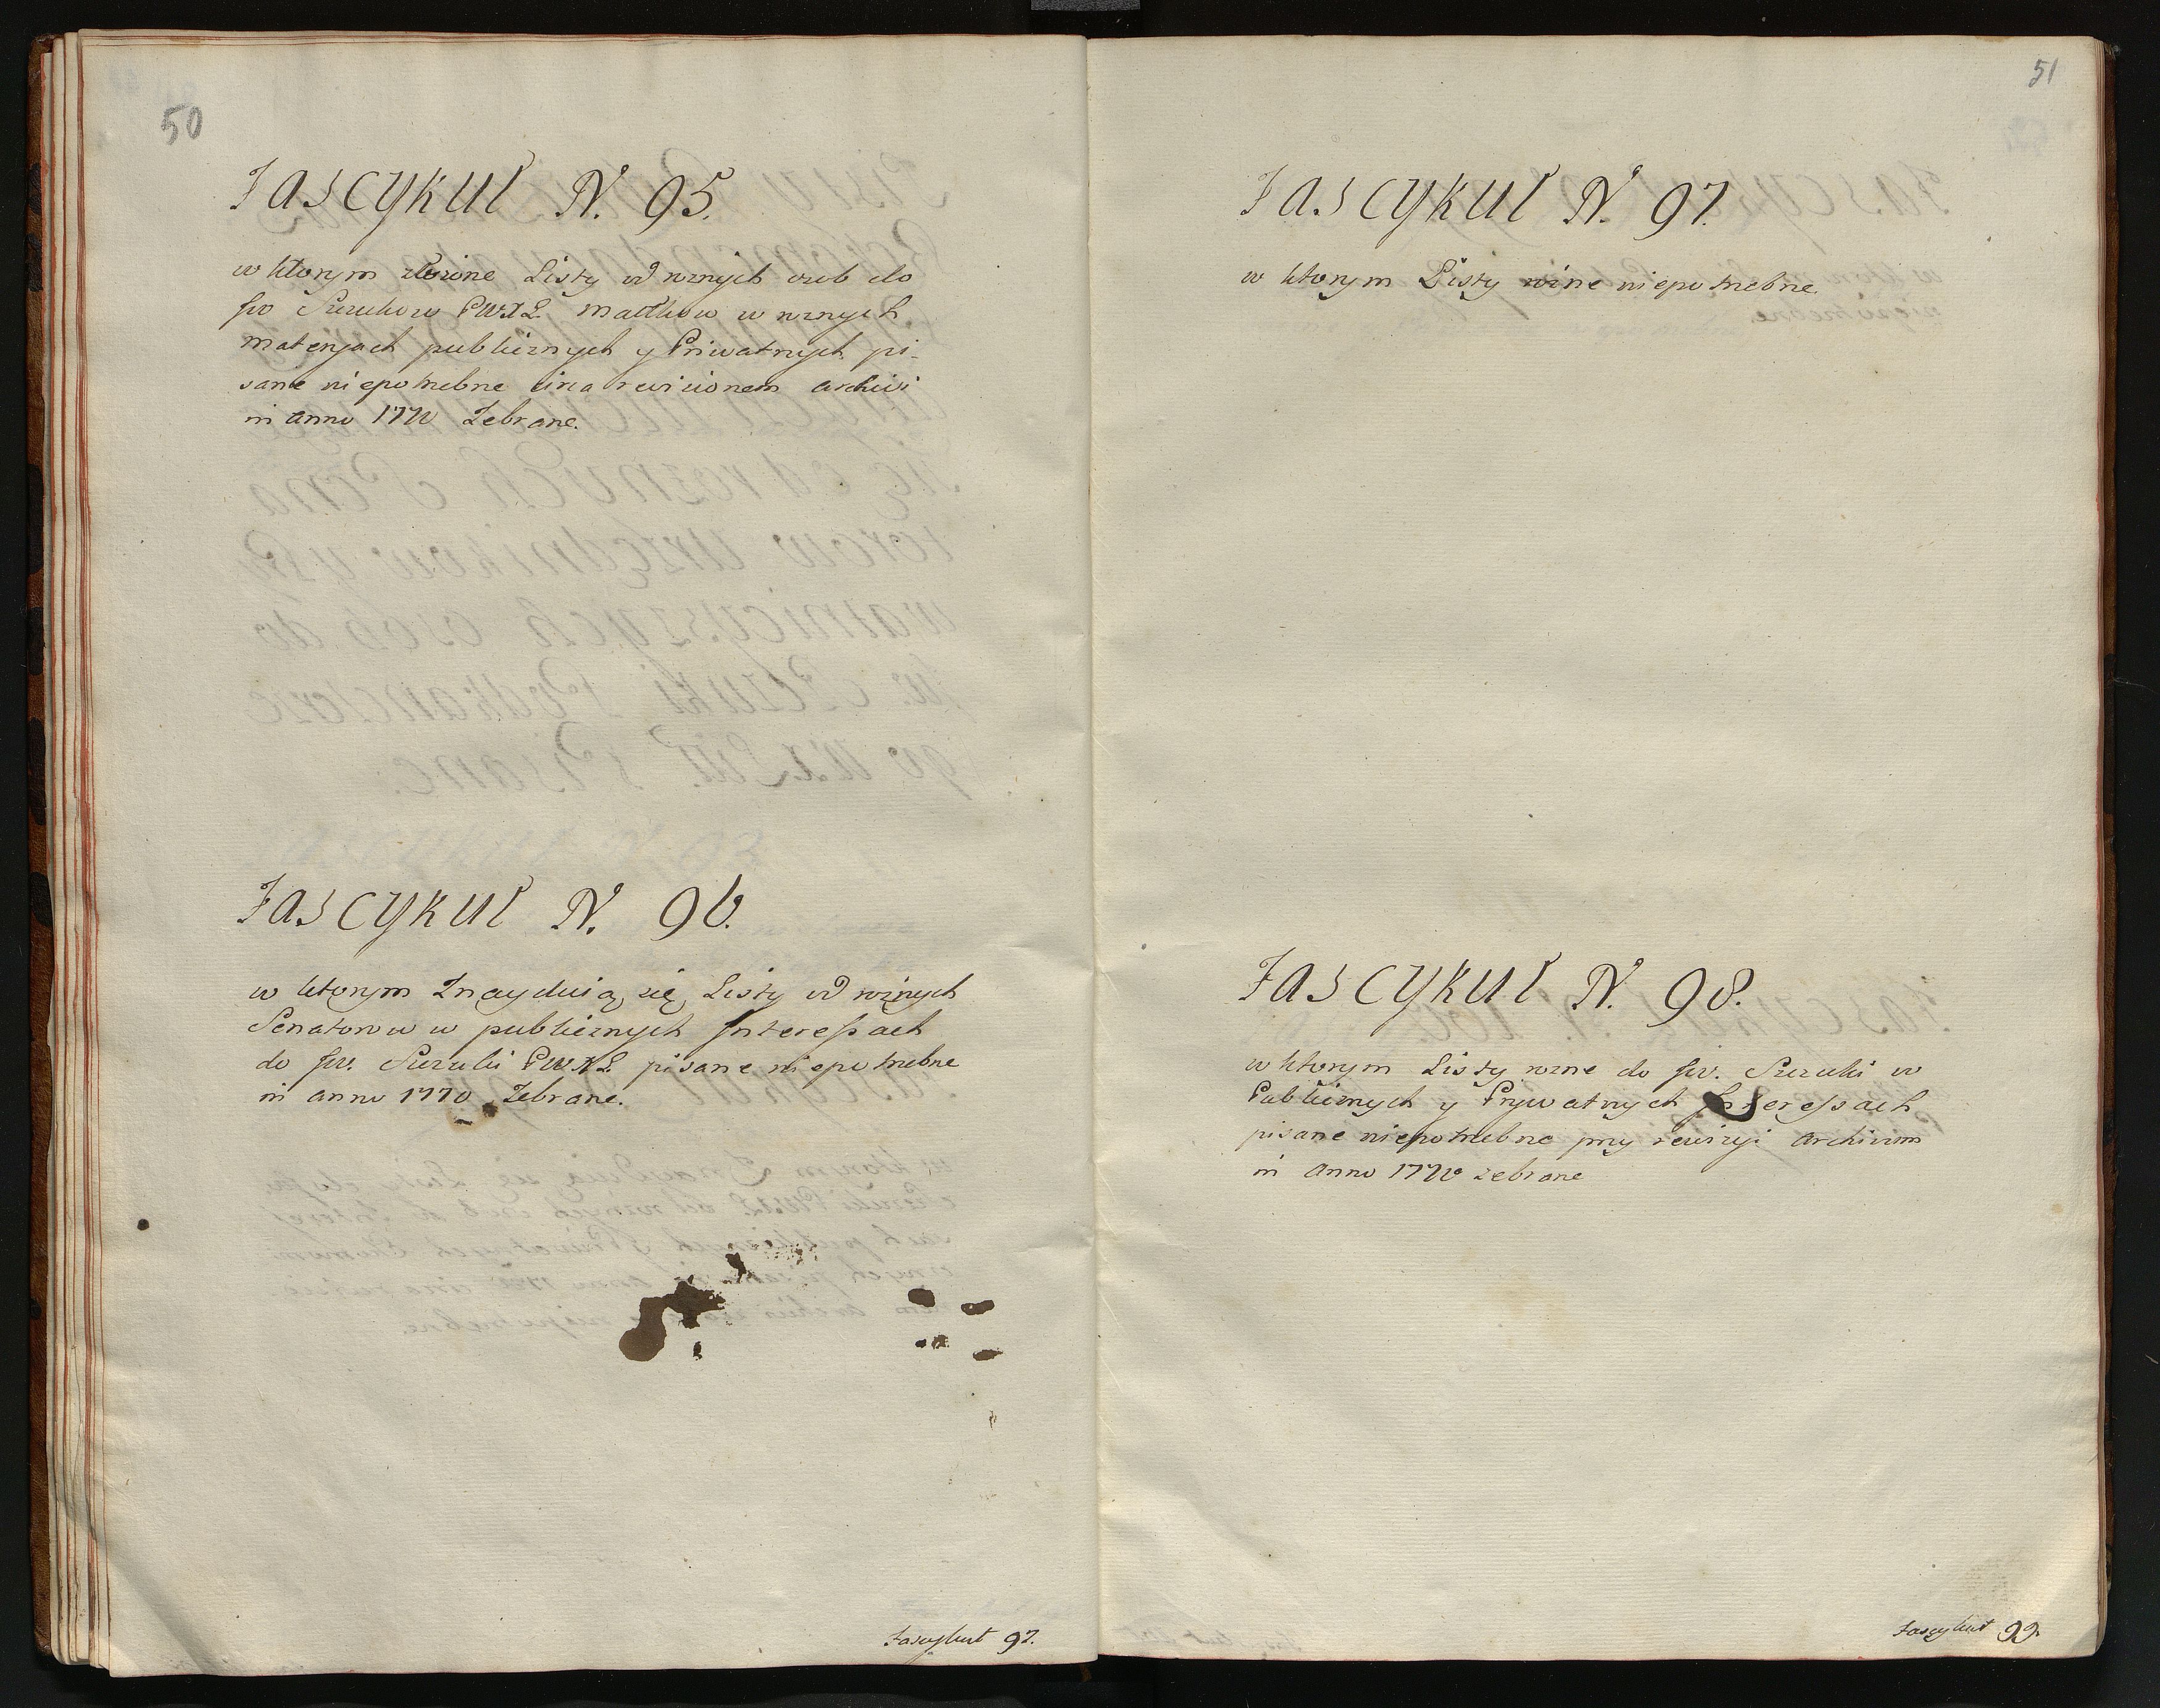 50
Fascykuł N. 95.
w ktorym złozone Listy od roznych osob do
Jw Sczukow PWXL Małkow w roznych
materyach publicznych y Priwatnych pi-
sane niepotrzebne circa revisionem archivi
in anno 1770 Zebrane.
Fascykuł N. 96.
w ktorym Znayduią się Listy od roznych
Senatorow w publicznych Interessach
do Jw. Sczuki PWXL pisane niepotrzebne
in anno 1770 Zebrane.
Fascykuł 97.
51
Fascykuł N. 97.
w ktorym Listy rózne niepotrzebne.
Fascykuł N. 98.
w ktorym Listy rozne do Jw. Sczuki w
Publicznych y Prywatnych Interessach
pisane niepotrzebne przy rewizyi Archivum
in Anno 1770 zebrane
Fascykuł 99.